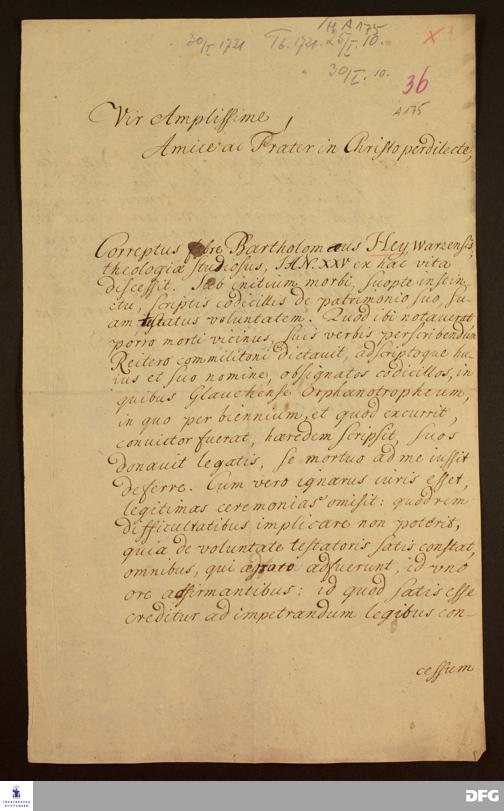 H A 175
30/I 1721 Tb. 1721. 25/I. 10. X
30/I. 10.
36
A 175
Vir Amplissime,
Amice ac Frater in Christo perdilecte,
Correptus febre Bartholomaeus Hey, Warzensis,
theologiae studiosus, IAN. XXV ex hac vita
discessit. Sub initium morbi, suopte instin-
ctu, scriptis codicillis de patrimonio suo, su-
am testatus voluntatem. Quod ibi notaverat
porro morti vicinus, suis verbis perscribendum
Reitero commilitoni dictavit, adscriptoque hu-
ius et suo nomine, obsignatos codicillos, in
quibus Glauchense Orphanotropheum,
in quo per biennium, et quod excurrit,
convictor fuerat, haeredem scripsit, suos
donavit legatis, se mortuo ad me iussit
deferre. Cum vero ignarus iuris esset,
legitimas ceremonias omisit: quod rem
difficultatibus implicare non poterit,
quia de voluntate testatoris satis constat,
omnibus, qui adfuerunt, id vno
ore adfirmantibus: id quod satis esse
creditur ad impetrandum legibus con-
cessum
FRANCKESCHE
STIFTUNGEN
DFG